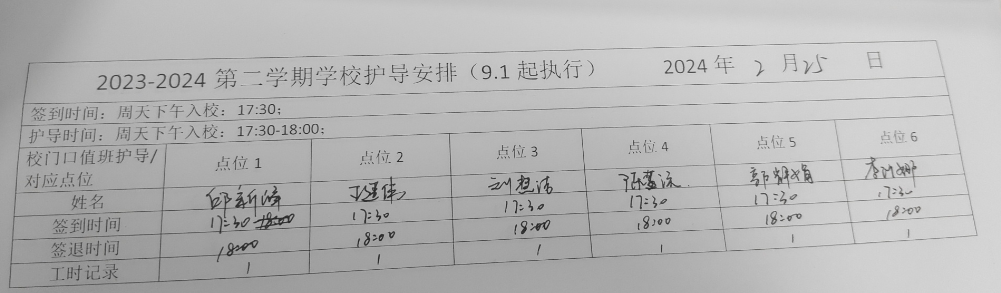 2023-2024 第二学期学校护导安排（9.1 起执行） 2024 年 2 月 25 日
签到时间：周天下午入校：17:30；
护导时间：周天下午入校：17:30-18:00；
校门口值班护导/对应点位 点位 1 点位 2 点位 3 点位 4 点位 5 点位 6
姓名
签到时间 17:30 18:00 17:30 17:30 17:30 17:30 17:30
签退时间 18:00 18:00 18:00 18:00 18:00 18:00
工时记录 1 1 1 1 1 1